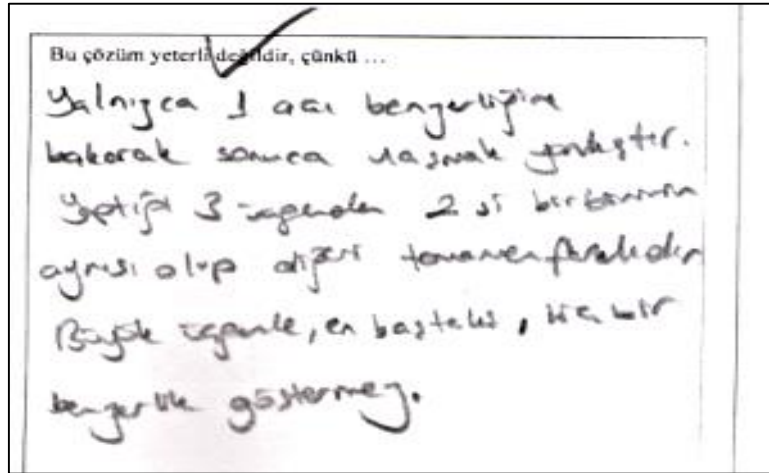 Bu çözüm yeterli değildir, çünkü ...
Yalnızca 1 açı benzerliğine
bakarak sonuca ulaşmak yanlıştır.
Yaptığı 3 üçgenden 2 si birbirinin
aynısı olup diğeri tamamen farklıdır
Büyük üçgenle, en baştaki, hiç bir
benzerlik göstermez.